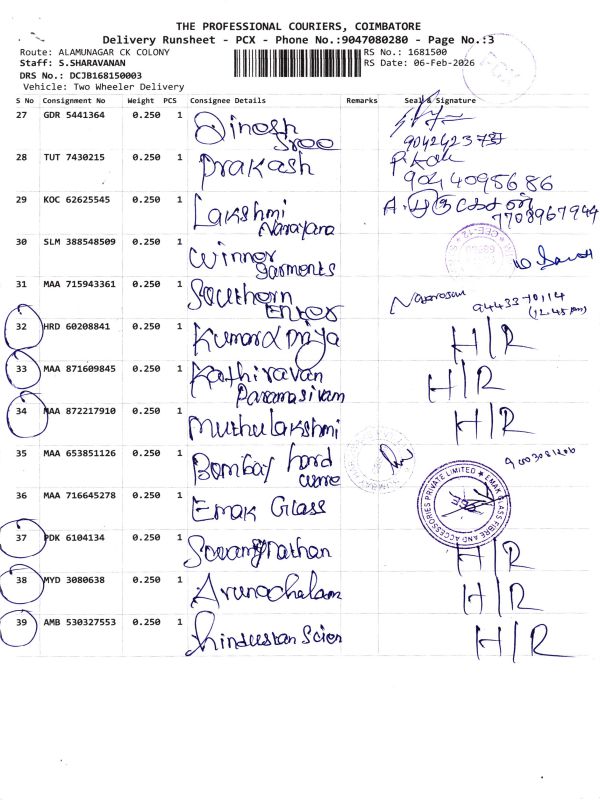 THE PROFESSIONAL COURIERS, COIMBATORE
Delivery Runsheet - PCX - Phone No.:9047080280 - Page No.:3
Route: ALAMUNAGAR CK COLONY
RS No.: 1681500
Staff: S.SHARAVANAN
RS Date: 06-Feb-2026
DRS No.: DCJB168150003
Vehicle: Two Wheeler Delivery
S No Consignment No Weight PCS Consignee Details Remarks Seal & Signature
27 GDR 5441364 0.250 1 Dinosh
Sroo
28 TUT 7430215 0.250 1 Prakash
9041409868
29 KOC 62625545 0.250 1 Lakshmi
Narayana
7708967944
30 SLM 388548509 0.250 1 Winnor
garments
31 MAA 715943361 0.250 1 Southorn
Enter
(12.45 pm)
32 HRD 60208841 0.250 1 Kumara Priya H/R
33 MAA 871609845 0.250 1 Kathiravan H/R
Paramasivam
34 MAA 872217910 0.250 1 Muthulakshmi H/R
35 MAA 653851126 0.250 1 Bombay hard
36 MAA 716645278 0.250 1 Emak Glass
EMAK GLASS FIBRE AND ACCESSORIES PRIVATE LIMITED
37 PDK 6104134 0.250 1 H/R
38 MYD 3080638 0.250 1 Arunachalam H/R
39 AMB 530327553 0.250 1 hindustan Scien H/R